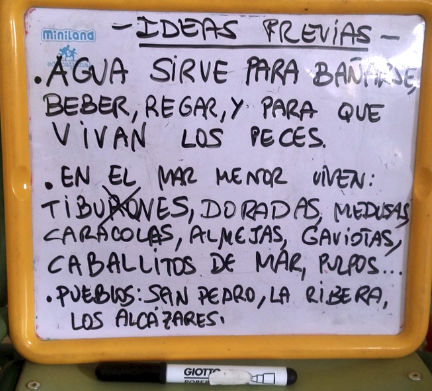 miniland
- IDEAS PREVIAS -
. AGUA SIRVE PARA BAÑARSE,
BEBER, REGAR, Y PARA QUE
VIVAN LOS PECES.
. EN EL MAR MENOR VIVEN:
TIBURONES, DORADAS, MEDUSAS,
CARACOLAS, ALMEJAS, GAVIOTAS,
CABALLITOS DE MAR, PULPOS...
. PUEBLOS: SAN PEDRO, LA RIBERA,
LOS ALCÁZARES.
GIOTTO